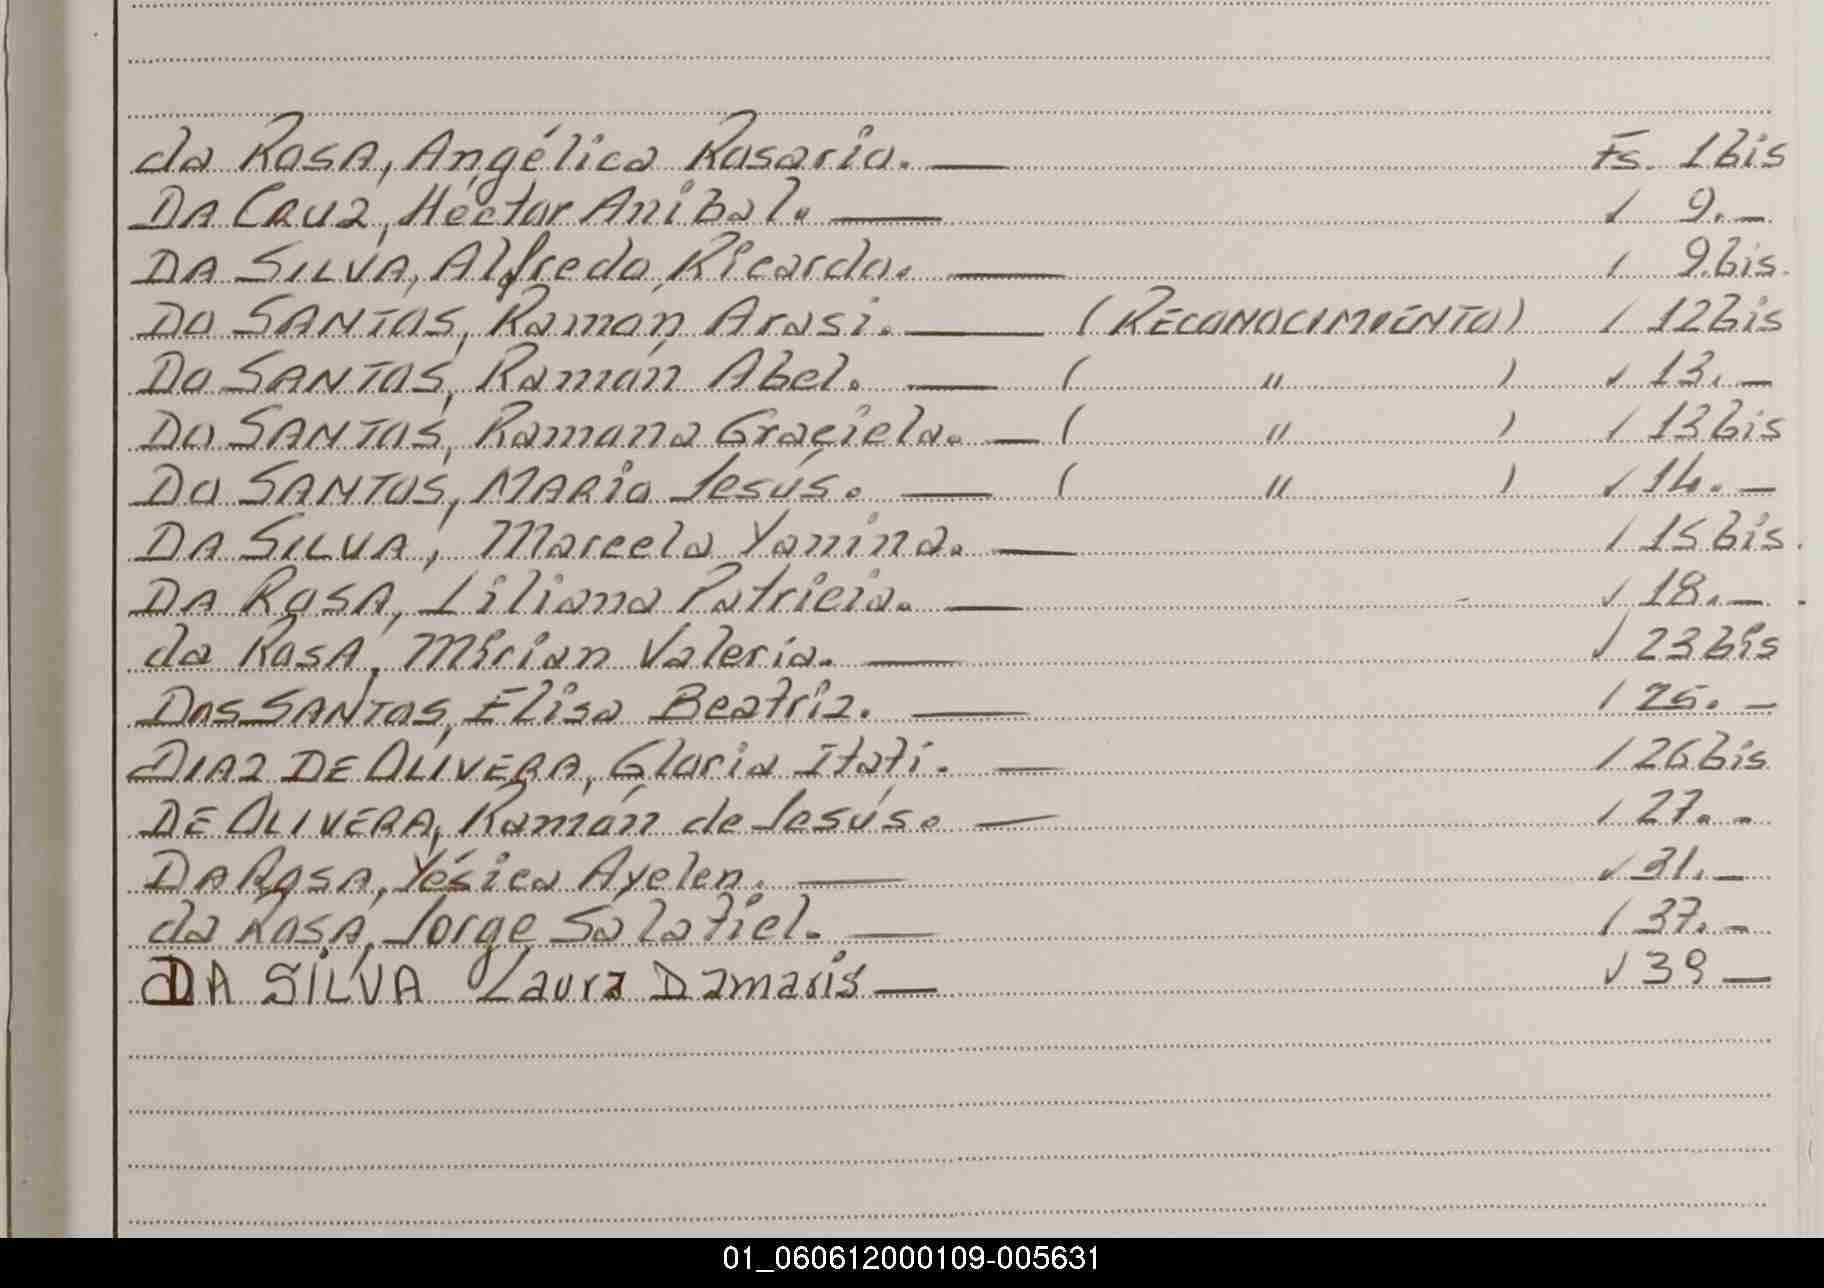 da ROSA, Angélica Rosario. — Fs. 1bis
DA CRUZ, Héctor Anibal. — / 9.-
DA SILVA, Alfredo Ricardo. — / 9bis.
Do SANTOS, Ramón Arasi. — (RECONOCIMIENTO) / 12bis
Do SANTOS, Ramón Abel. — ( " ) / 13.-
Do SANTOS, Ramona Graciela. — ( " ) / 13bis
Do SANTOS, MARIO Jesús. — ( " ) / 14.-
DA SILVA, Marcela Yanina. — / 15bis.
DA ROSA, Liliana Patricia. — / 18.-
da ROSA, Mirian Valeria. — / 23bis
Dos SANTOS, Elisa Beatriz. — / 25.-
DIAZ DE OLIVERA, Gloria Itatí. — / 26bis
DE OLIVERA, Ramón de Jesús. — / 27.-
DA ROSA, Yésica Ayelen. — / 31.-
da ROSA, Jorge Salatiel. — / 37.-
DA SILVA Laura Damaris — / 39 —
01_060612000109-005631